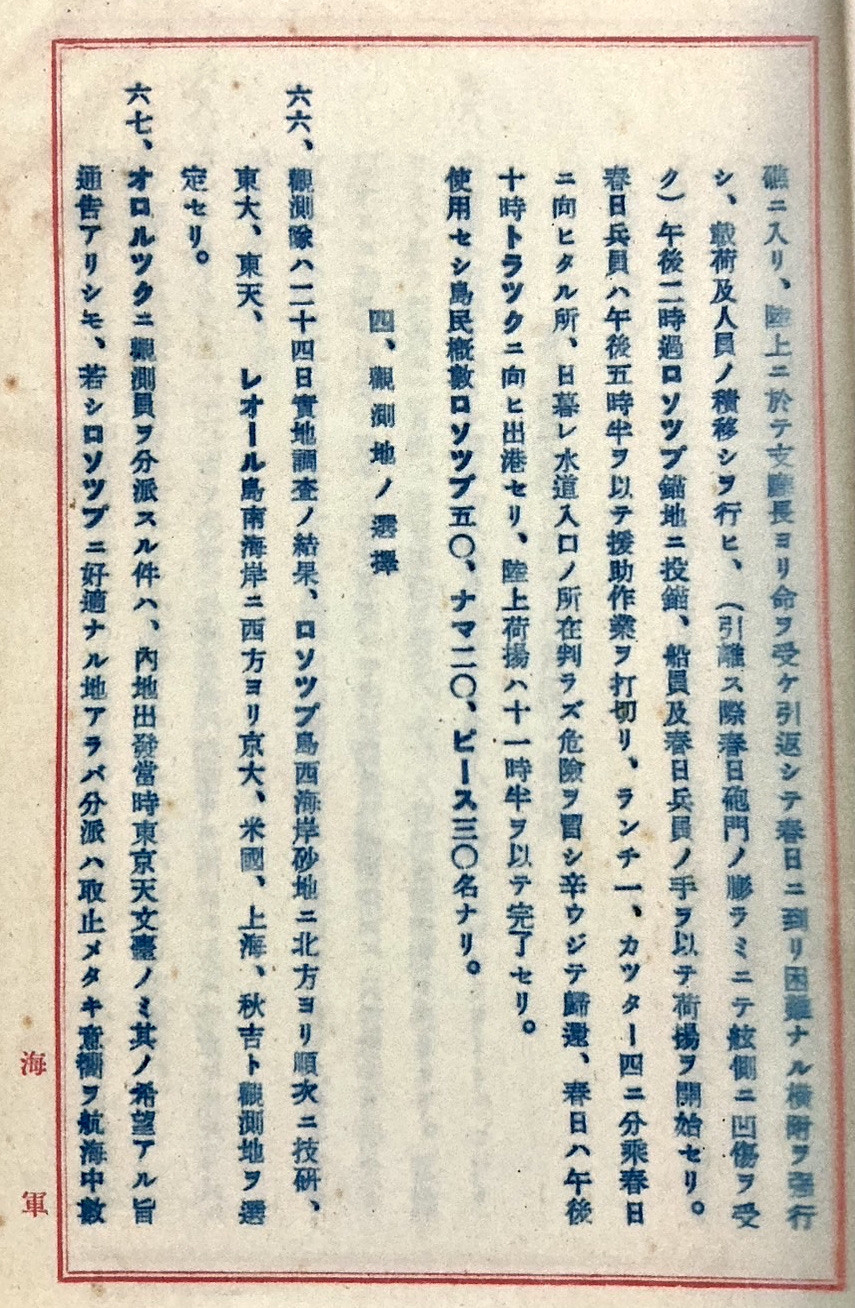 礁ニ入リ、陸上ニ於テ支廳長ヨリ命ヲ受ケ引返シテ春日ニ到リ困難ナル横附ヲ强行
シ、載荷及人員ノ積移シヲ行ヒ、（引離ス際春日砲門ノ膨ラミニテ舷側ニ凹傷ヲ受
ク）午後二時過ロソツプ錨地ニ投錨、船員及春日兵員ノ手ヲ以テ荷揚ヲ開始セリ。
春日兵員ハ午後五時半ヲ以テ援助作業ヲ打切リ、ランチ一、カツター四ニ分乘春日
ニ向ヒタル所、日暮レ水道入口ノ所在判ラズ危險ヲ冒シ辛ウジテ歸還、春日ハ午後
十時トラツクニ向ヒ出港セリ、陸上荷揚ハ十一時半ヲ以テ完了セリ。
使用セシ島民槪數ロソツプ五〇、ナマ二〇、ピース三〇名ナリ。
四、觀測地ノ選擇
六六、觀測隊ハ二十四日實地調査ノ結果、ロソツプ島西海岸砂地ニ北方ヨリ順次ニ技硏、
東大、東天、レオール島南海岸ニ西方ヨリ京大、米國、上海、秋吉ト觀測地ヲ選
定セリ。
六七、オロルツクニ觀測員ヲ分派スル件ハ、內地出發當時東京天文臺ノミ其ノ希望アル旨
通告アリシモ、若シロソツプニ好適ナル地アラバ分派ハ取止メタキ意嚮ヲ航海中數
海軍